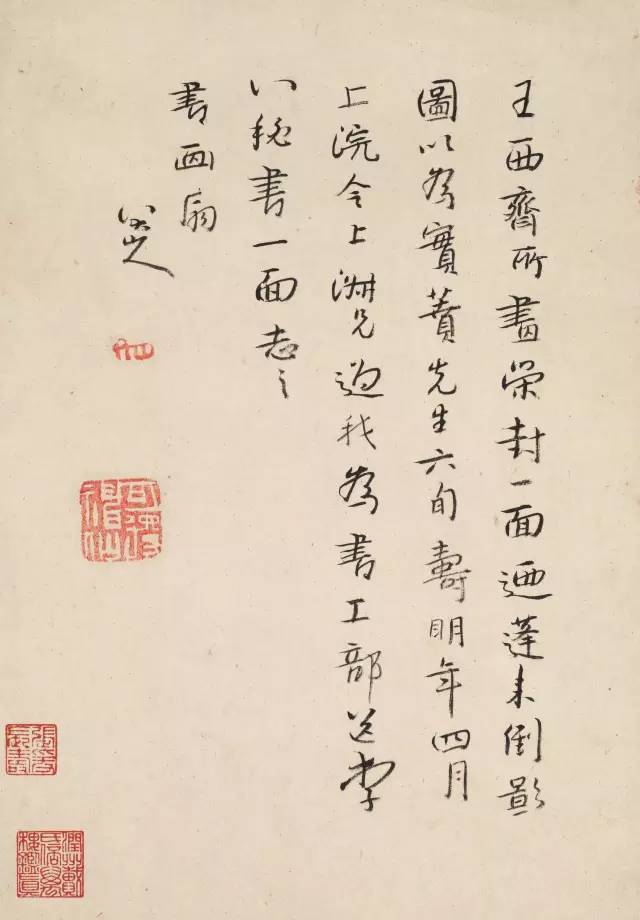 王西齋所畫榮封一面廼蓬萊倒影
圖以為實蕡先生六旬壽明年四月
上浣令上洲兄過我為書工部送李
八秘書一面志之
書画扇
八大山人